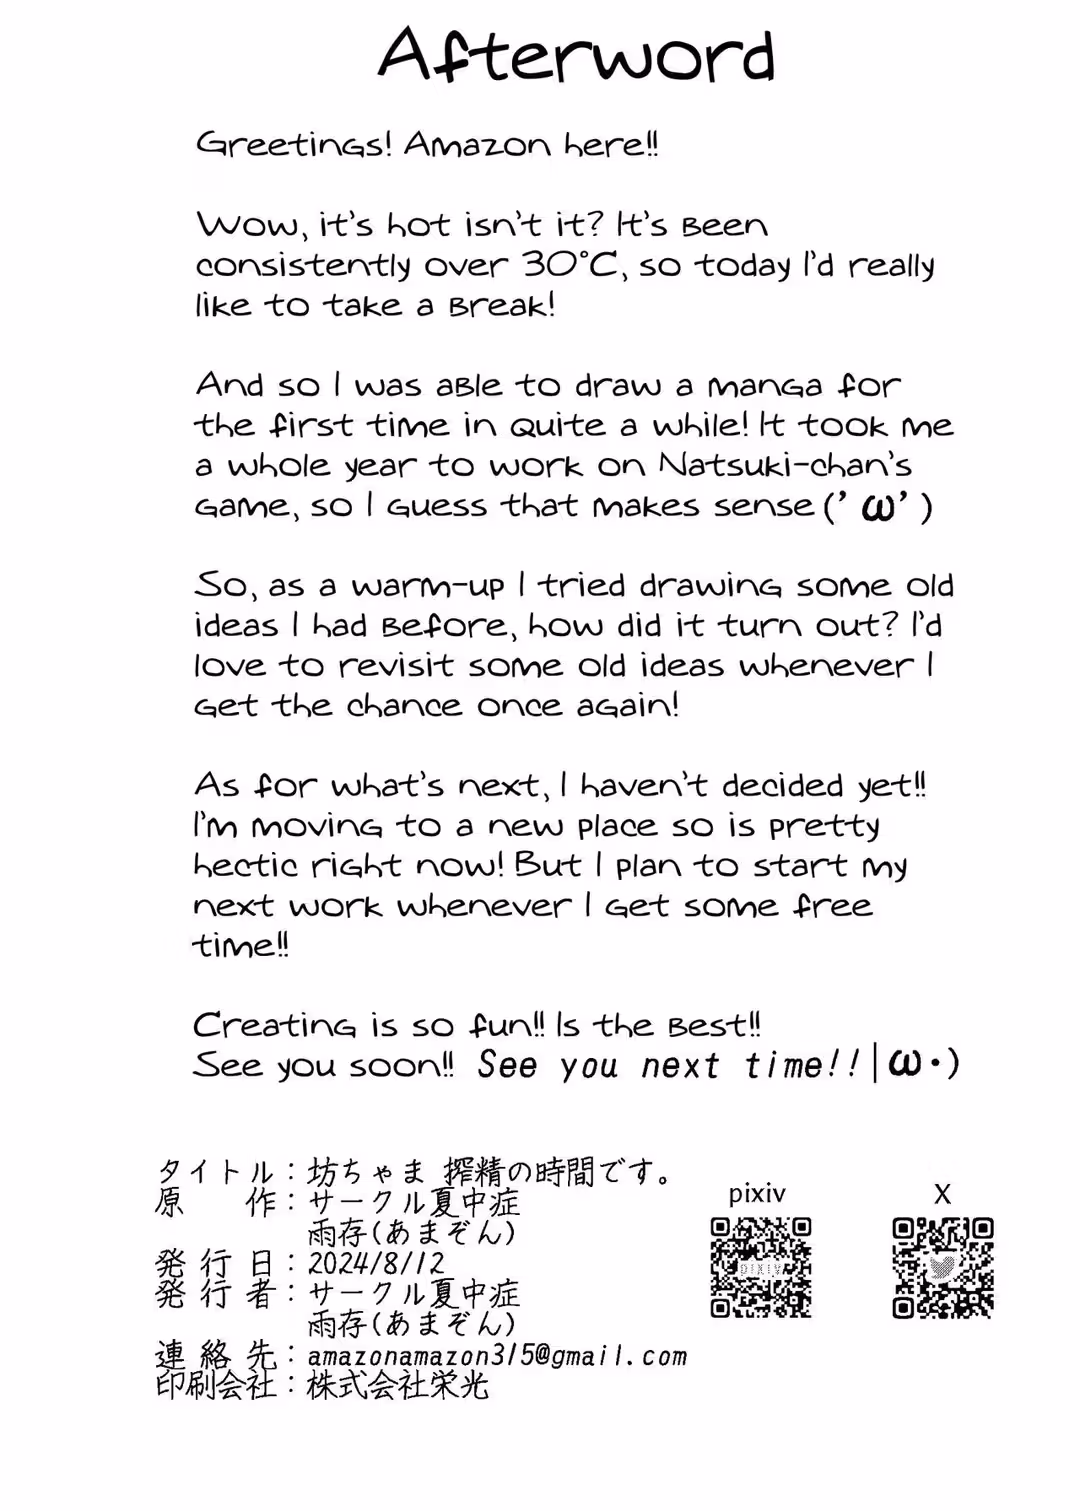 Afterword
Greetings! Amazon here!!
Wow, it's hot isn't it? It's been
consistently over 30°C, so today I'd really
like to take a break!
And so I was able to draw a manga for
the first time in quite a while! It took me
a whole year to work on Natsuki-chan's
game, so I guess that makes sense ('ω')
So, as a warm-up I tried drawing some old
ideas I had before, how did it turn out? I'd
love to revisit some old ideas whenever I
get the chance once again!
As for what's next, I haven't decided yet!!
I'm moving to a new place so is pretty
hectic right now! But I plan to start my
next work whenever I get some free
time!!
Creating is so fun!! Is the best!!
See you soon!! See you next time!!|ω・)
タイトル：坊ちゃま 搾精の時間です。
原作：サークル夏中症
雨存(あまぞん)
発行日：2024/8/12
発行者：サークル夏中症
雨存(あまぞん)
連絡先：amazonamazon315@gmail.com
印刷会社：株式会社栄光
pixiv
X
pixiv